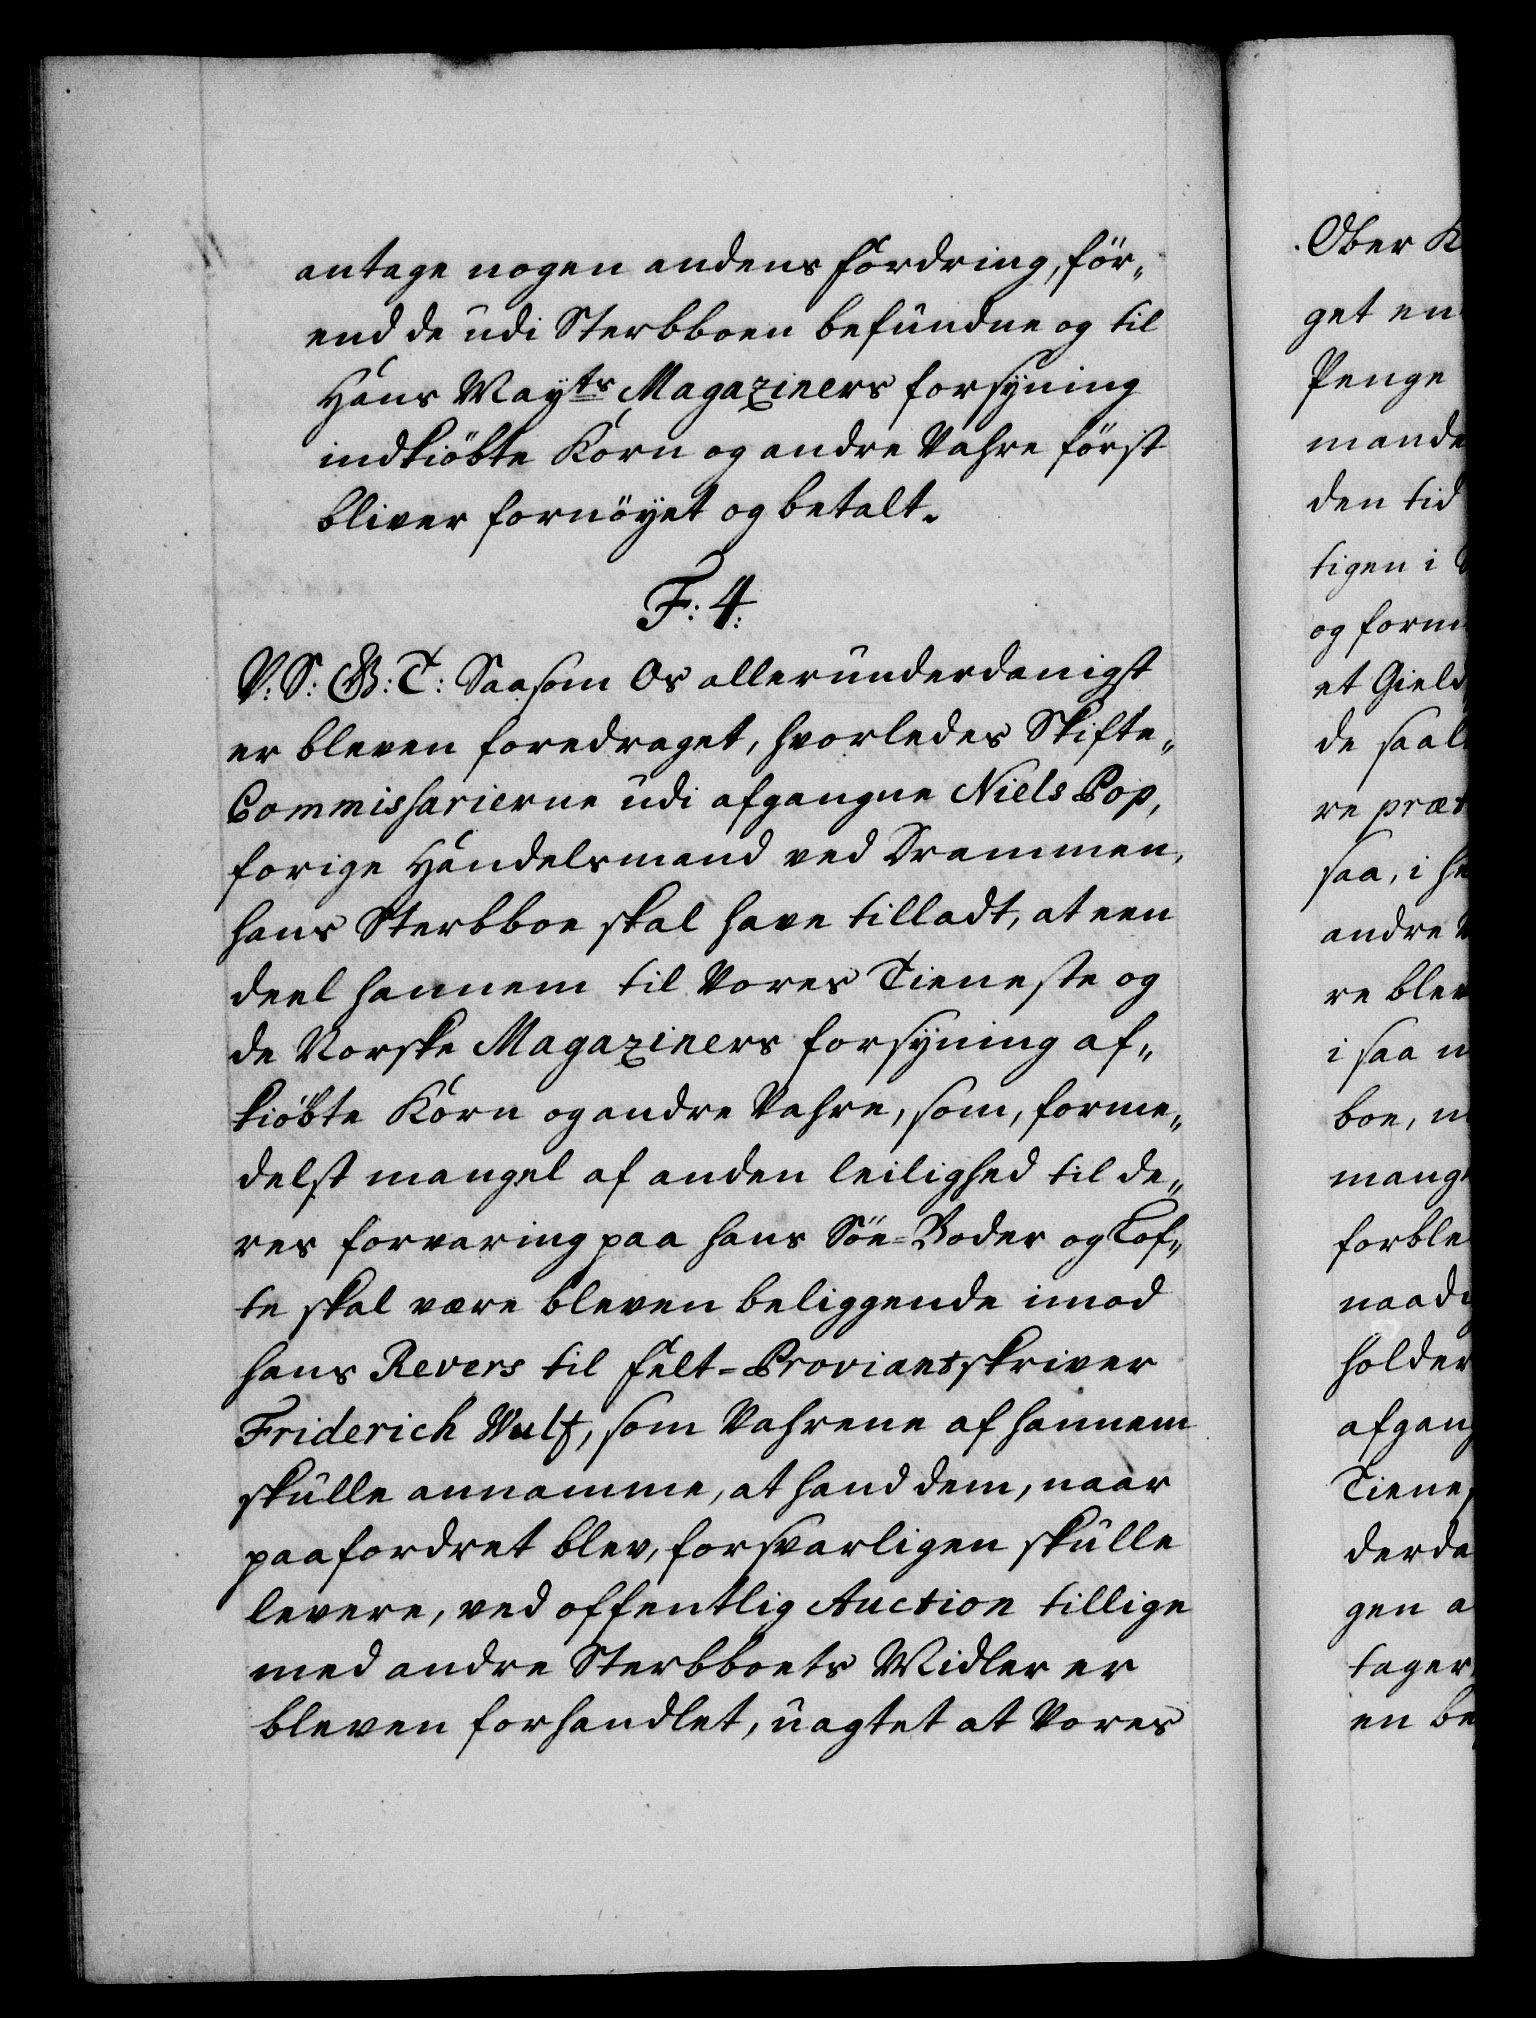 antage nogen andens fordring, för„
end de udi Sterbboen befundne og til
Hans Mayts Magaziners forsyning
indkiöbte Korn og andre Vahre först
bliver fornöyet og betalt.
F: 4:
V: S: G: T: Saasom Os allerunderdanigst
er bleven foredraget, hvorledes Skifte„
Commissarierne udi afgangne Niels Pop,
forige Handelsmand ved Drammen,
hans Sterbboe skal have tilladt, at een
deel hannem til Vores Tieneste og
de Norske Magaziners forsyning af„
kiöbte Korn og andre Vahre, som, forme„
delst mangel af anden leilighed til de„
res forvaring paa hans Söe-Boder og Lof„
te skal være bleven beliggende imod
hans Revers til Felt-Proviantskriver
Friderich Wulf, som Vahrene af hannem
skulle annamme, at hand dem, naar
paafordret blev, forsvarligen skulle
levere, ved offentlig Auction tillige
med andre Sterbboets Midler er
bleven forhandlet, uagtet at Vores
Ober K
get en
Penge
mande
den tid
tigen i
og form
et Gield
de saal
re præt
saa, i h
andre
re blev
i saa
boe,
mang
forble
naad
holder
afgang
Tiene
derda
gen a
tager
en be